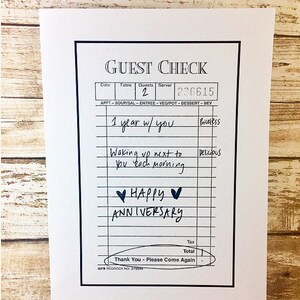 GUEST CHECK
Date Table Guests Server
2 236615
APPT - SOUP/SAL - ENTREE - VEG/POT - DESSERT - BEV
1 year w/ you Priceless
Waking up next to Delicious
you each morning
HAPPY
ANNIVERSARY
Tax
Total
Thank You - Please Come Again